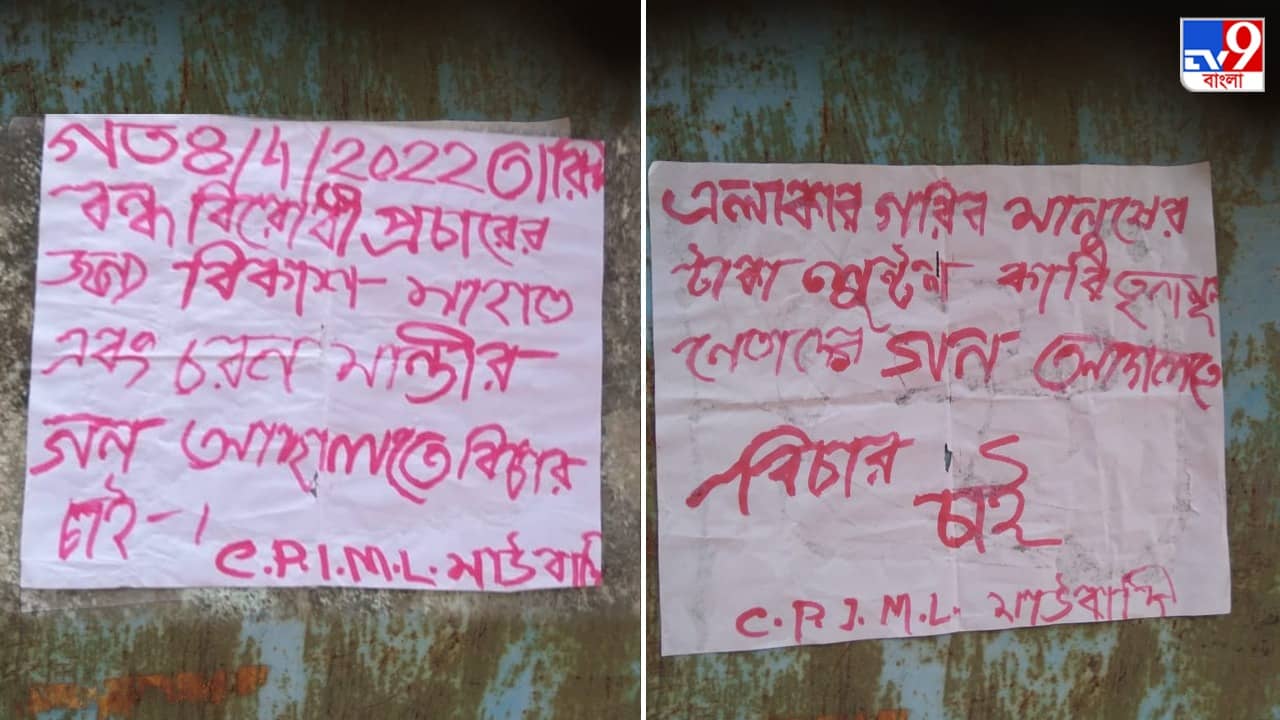 গত ৪/4/2022 তারিখ
বন্ধ বিরোধী প্রচারের
জন্য বিকাশ মাহাত
এবং চরন মান্ডীর
গন আদালতে বিচার
চাই-।
C.P.I.M.L. মাউবাদি
এলাকার গরিব মানুষের
টাকা লুন্টন কারি তৃনমূল
নেতাদের গন আদালতে
বিচার চাই
C.P.I.M.L. মাউবাদি
TV9
বাংলা